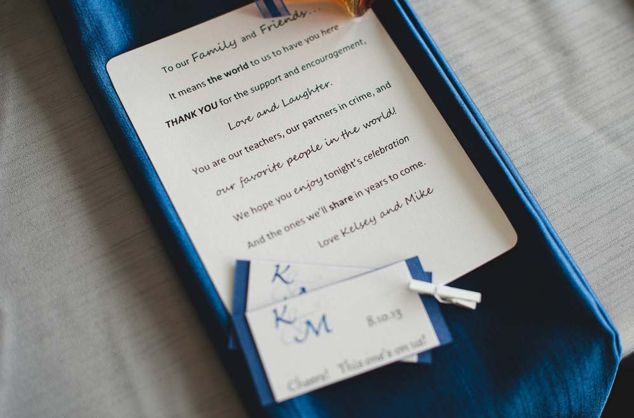 To our Family and Friends...
It means the world to us to have you here
THANK YOU for the support and encouragement,
Love and Laughter.
You are our teachers, our partners in crime, and
our favorite people in the world!
We hope you enjoy tonight's celebration
And the ones we'll share in years to come.
Love Kelsey and Mike
K
K M
8.10.13
Cheers! This one's on us!